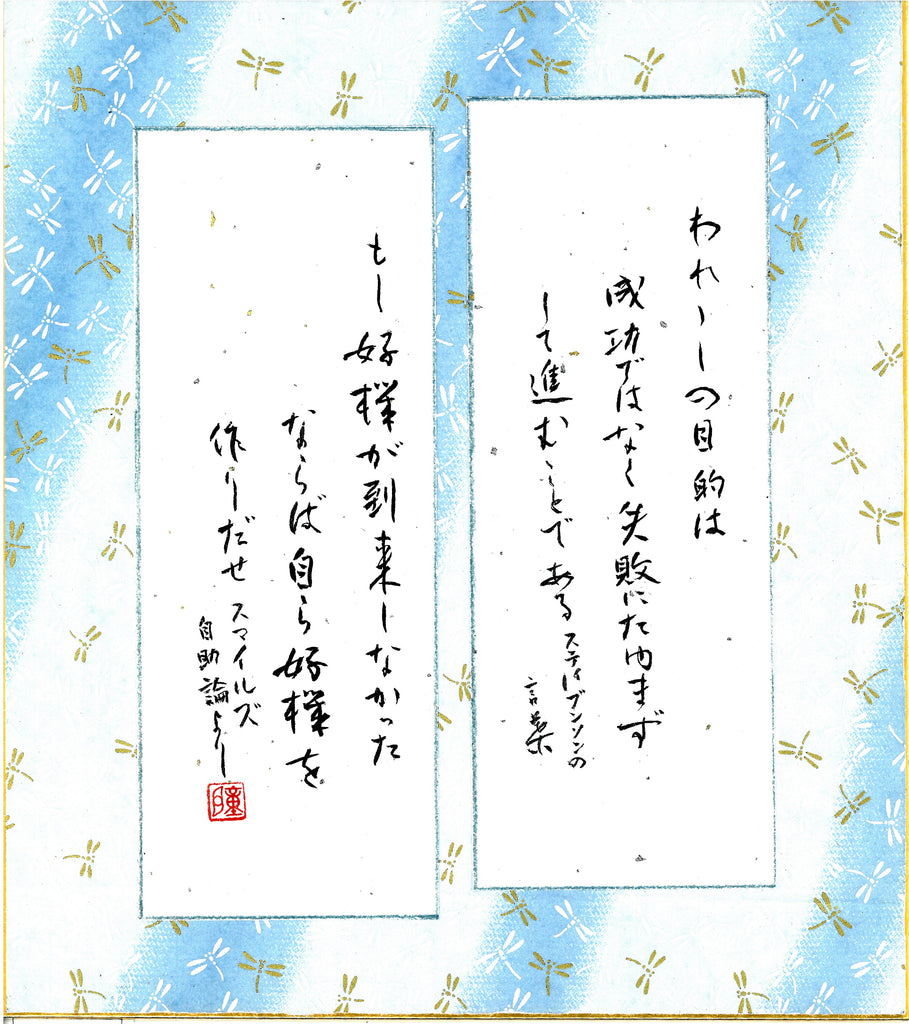 われゝしの目的は
成功ではなく失敗にたゆまず
して進むことである
スティブンソンの
言葉
もし好機が到来しなかった
ならば自ら好機を
作りだせ
スマイルズ
自助論より
瞳